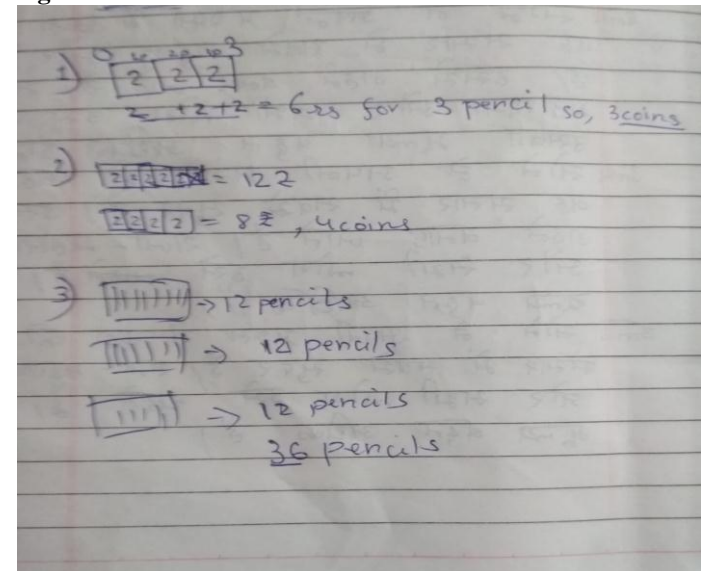 1) 0 3
2 2 2
2 +2+2 = 6 rs for 3 pencil so, 3 coins
2) 2 2 2 2 = 12 ₹
2 2 2 2 = 8 ₹, 4 coins
3) → 12 pencils
→ 12 pencils
→ 12 pencils
36 pencils